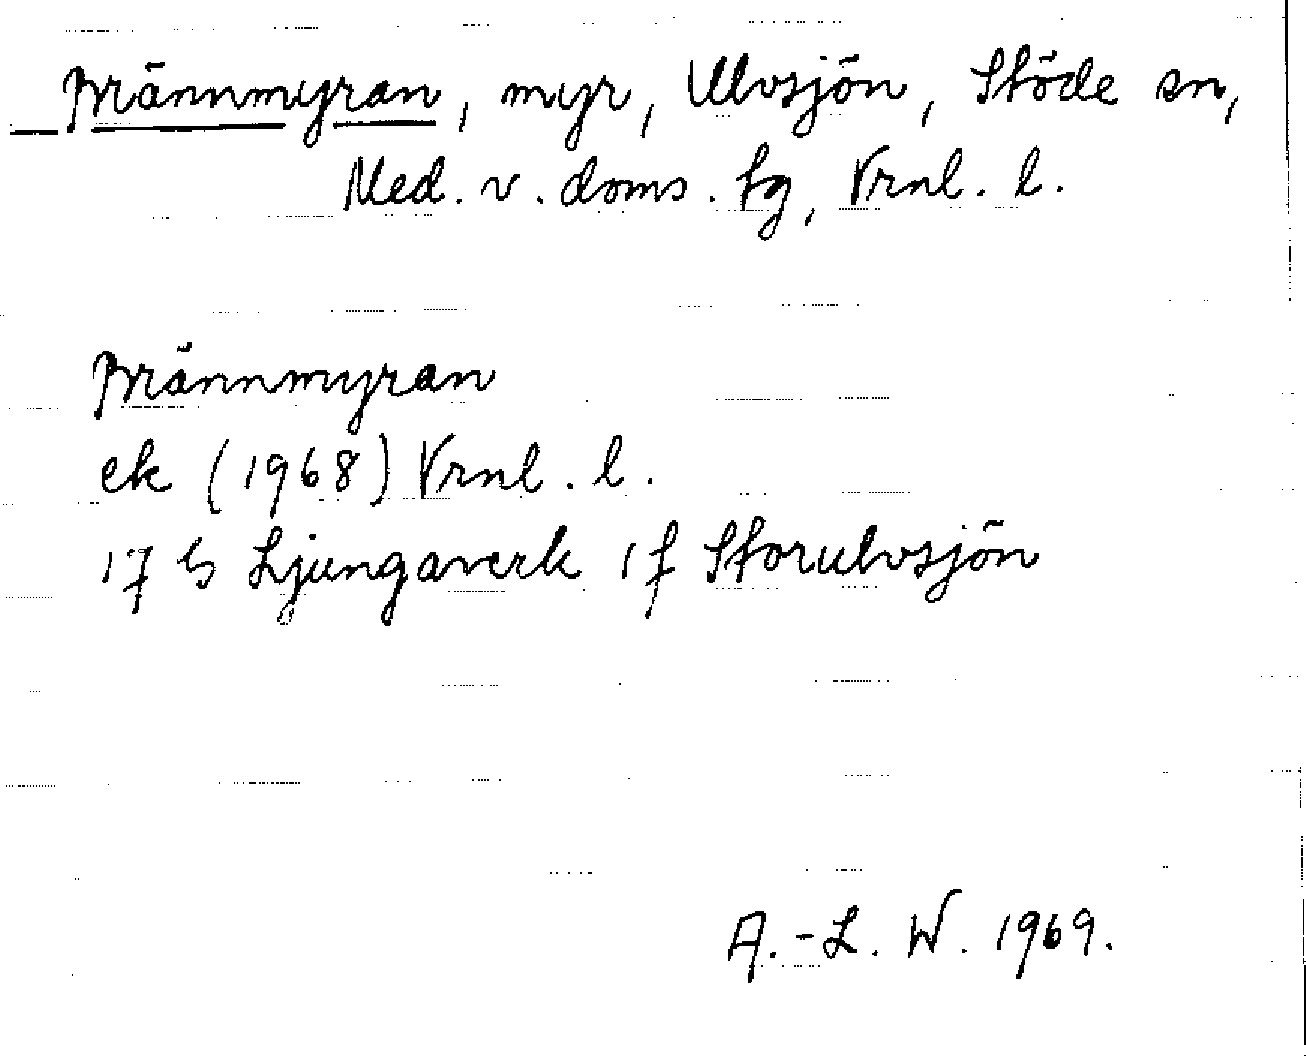 Brännmyran, myr, Ulvsjön, Stöde sn,
Med. v. doms. tg, Vrnl. l.
Brännmyran
ek (1968) Vrnl. l.
17 G Ljungaverk 1 f Storulvsjön
A.-L. W. 1969.